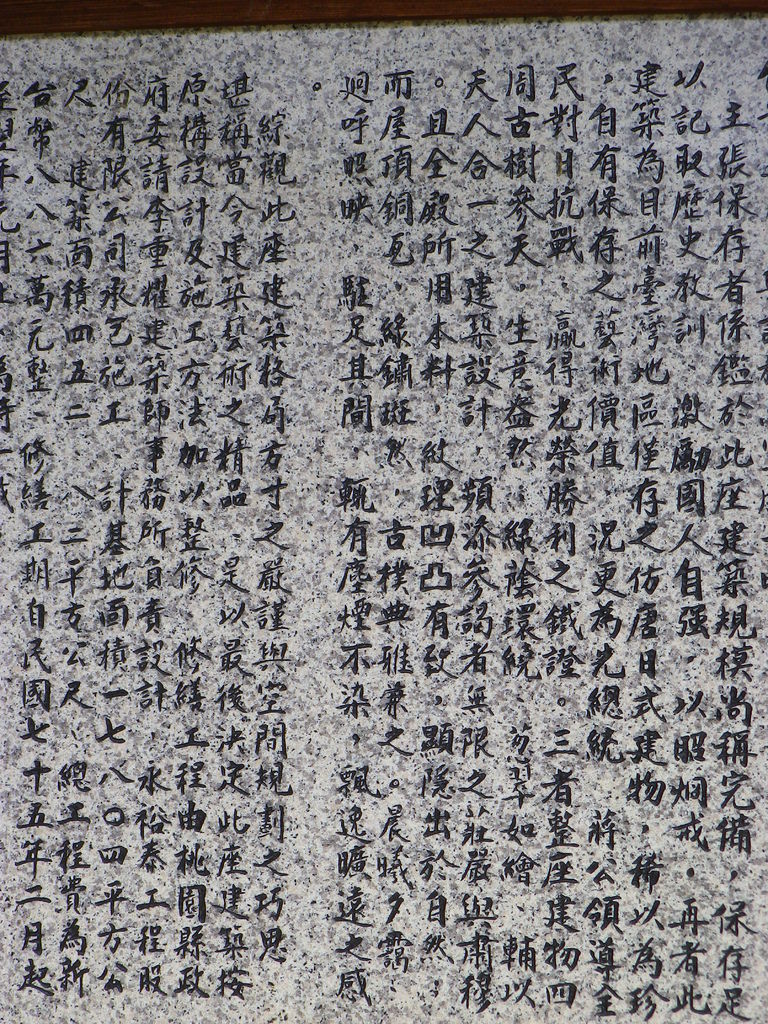 主張保存者係鑑於此座建築規模尚稱完備，保存足
以記取歷史教訓、激勵國人自強，以昭炯戒。再者此
建築為目前臺灣地區僅存之仿唐日式建物，稀以為珍
，自有保存之藝術價值、況更為先總統　蔣公領導全
民對日抗戰、贏得光榮勝利之鐵證。三者整座建物四
周古樹參天、生意盎然、綠蔭環繞、芴翠如繪、輔以
天人合一之建築設計，頻添參謁者無限之莊嚴與肅穆
。且全殿所用木料，紋理凹凸有致，顯隱出於自然；
而屋頂銅瓦、綠鏽斑然，古樸典雅兼之。晨曦夕靄、
迴呼照映、駐足其間、輒有塵煙不染，飄逸曠遠之感
。
綜觀此座建築格局方寸之嚴謹與空間規劃之巧思
堪稱當今建築藝術之精品、是以最後決定此座建築按
原構設計及施工方法加以整修、修繕工程由桃園縣政
府委請李重耀建築師事務所負責設計，永裕泰工程股
份有限公司承包施工、計基地面積一七八〇四平方公
尺、建築面積四五二．八二平方公尺、總工程費為新
台幣八八六萬元整、修繕工期自民國七十五年二月起
至翌年元月止、為時一載